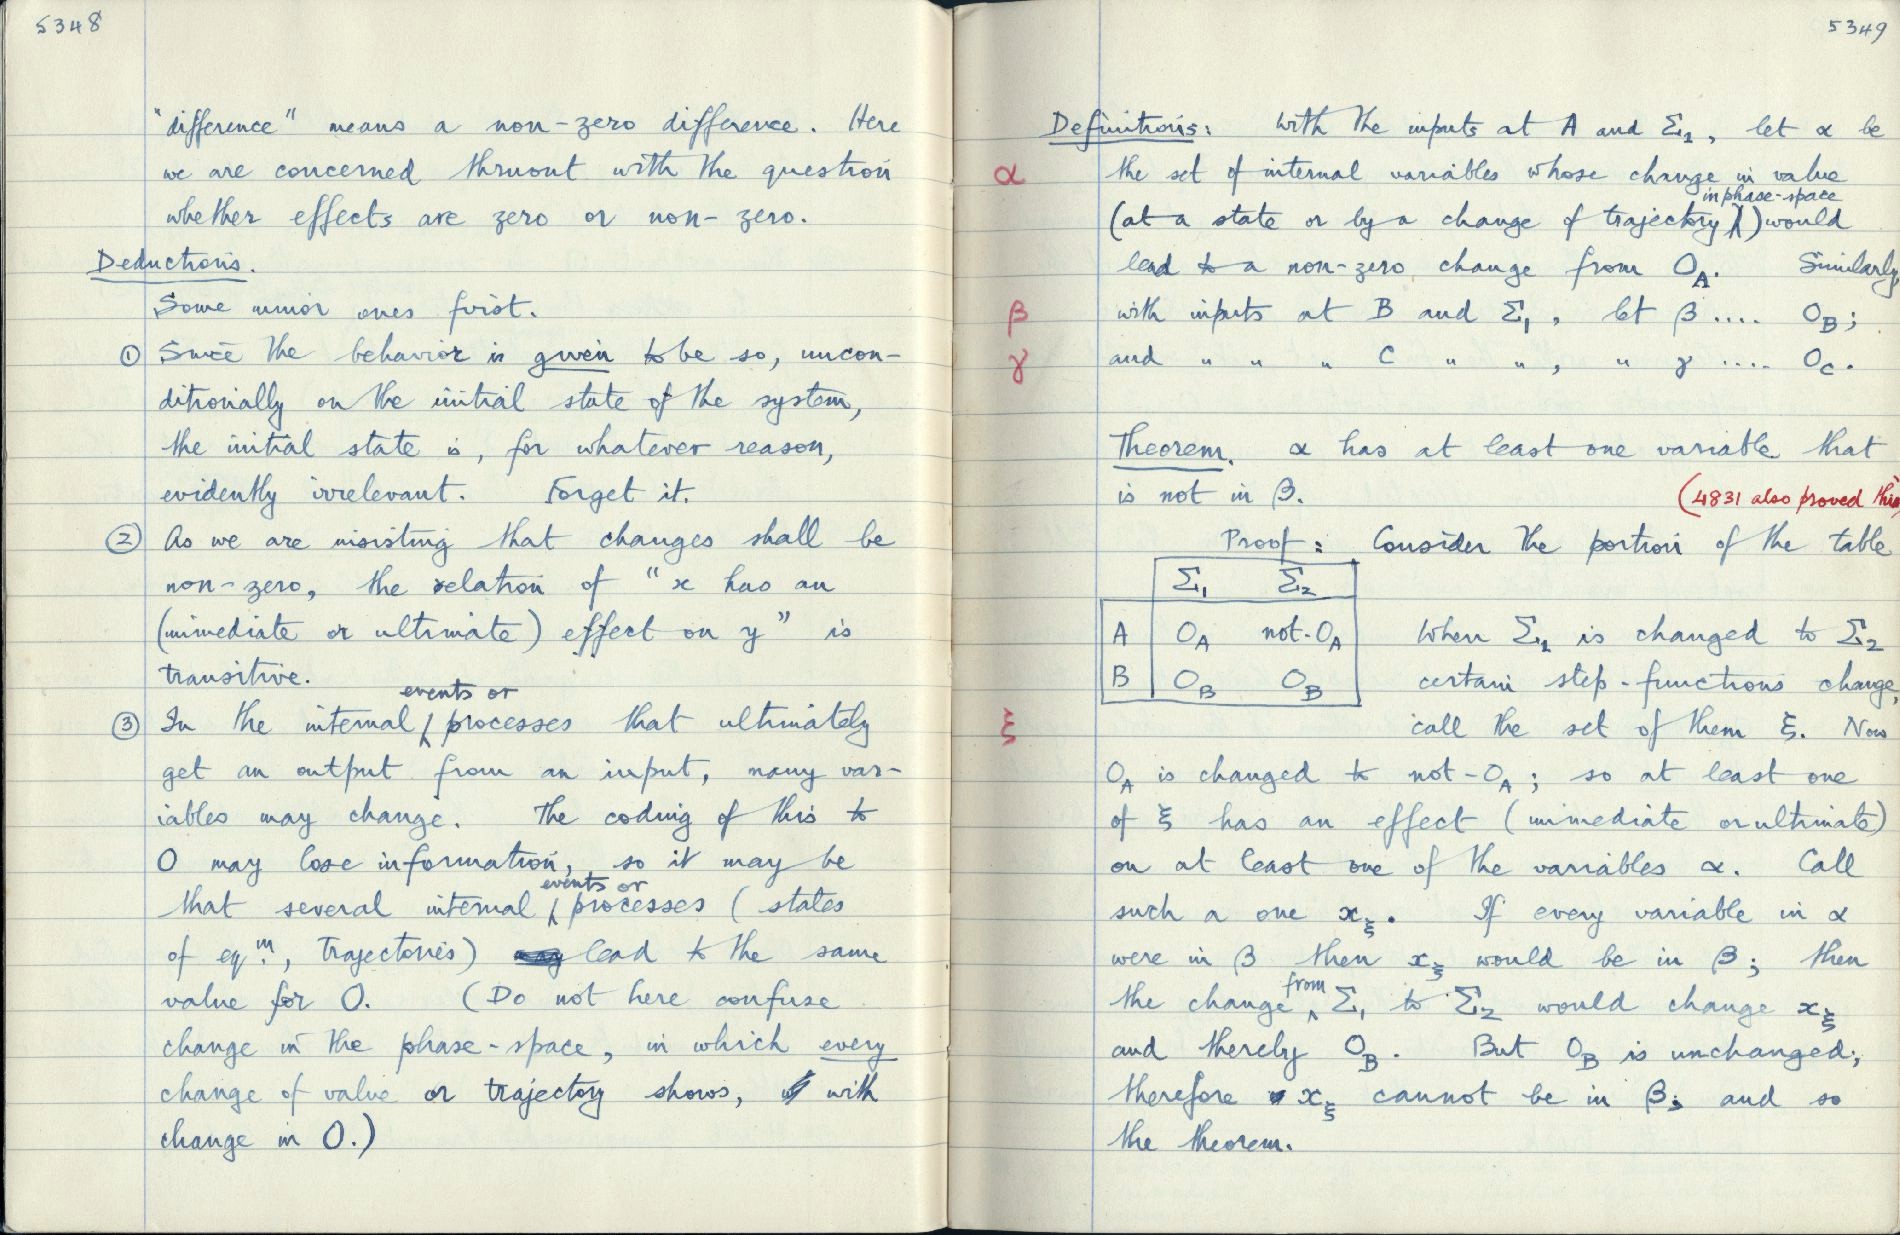 5348
"difference" means a non-zero difference. Here
we are concerned thruout with the question
whether effects are zero or non-zero.
Deductions.
Some minor ones first.
① Since the behavior is given to be so, uncon-
ditionally on the initial state of the system,
the initial state is, for whatever reason,
evidently irrelevant. Forget it.
② As we are insisting that changes shall be
non-zero, the relation of "x has an
(immediate or ultimate) effect on y" is
transitive.
events or
③ In the internal processes that ultimately
get an output from an input, many var-
iables may change. The coding of this to
O may lose information, so it may be
events or
that several internal processes (states
of eqm., trajectories) lead to the same
value for O. (Do not here confuse
change in the phase-space, in which every
change of value or trajectory shows, with
change in O.)
5349
Definitions: With the inputs at A and Σ₁, let α be
α the set of internal variables whose change in value
in phase-space
(at a state or by a change of trajectory) would
lead to a non-zero change from O_A. Similarly,
β with inputs at B and Σ₁, let β .... O_B;
γ and " " " C " ", " γ .... O_C.
Theorem. α has at least one variable that
is not in β. (4831 also proved this)
Proof: Consider the portion of the table
Σ₁ Σ₂
A O_A not-O_A When Σ₁ is changed to Σ₂
B O_B O_B certain step-functions change,
ξ call the set of them ξ. Now
O_A is changed to not-O_A; so at least one
of ξ has an effect (immediate or ultimate)
on at least one of the variables α. Call
such a one x_ξ. If every variable in α
were in β then x_ξ would be in β; then
from
the change Σ₁ to Σ₂ would change x_ξ
and thereby O_B. But O_B is unchanged;
therefore x_ξ cannot be in β; and so
the theorem.